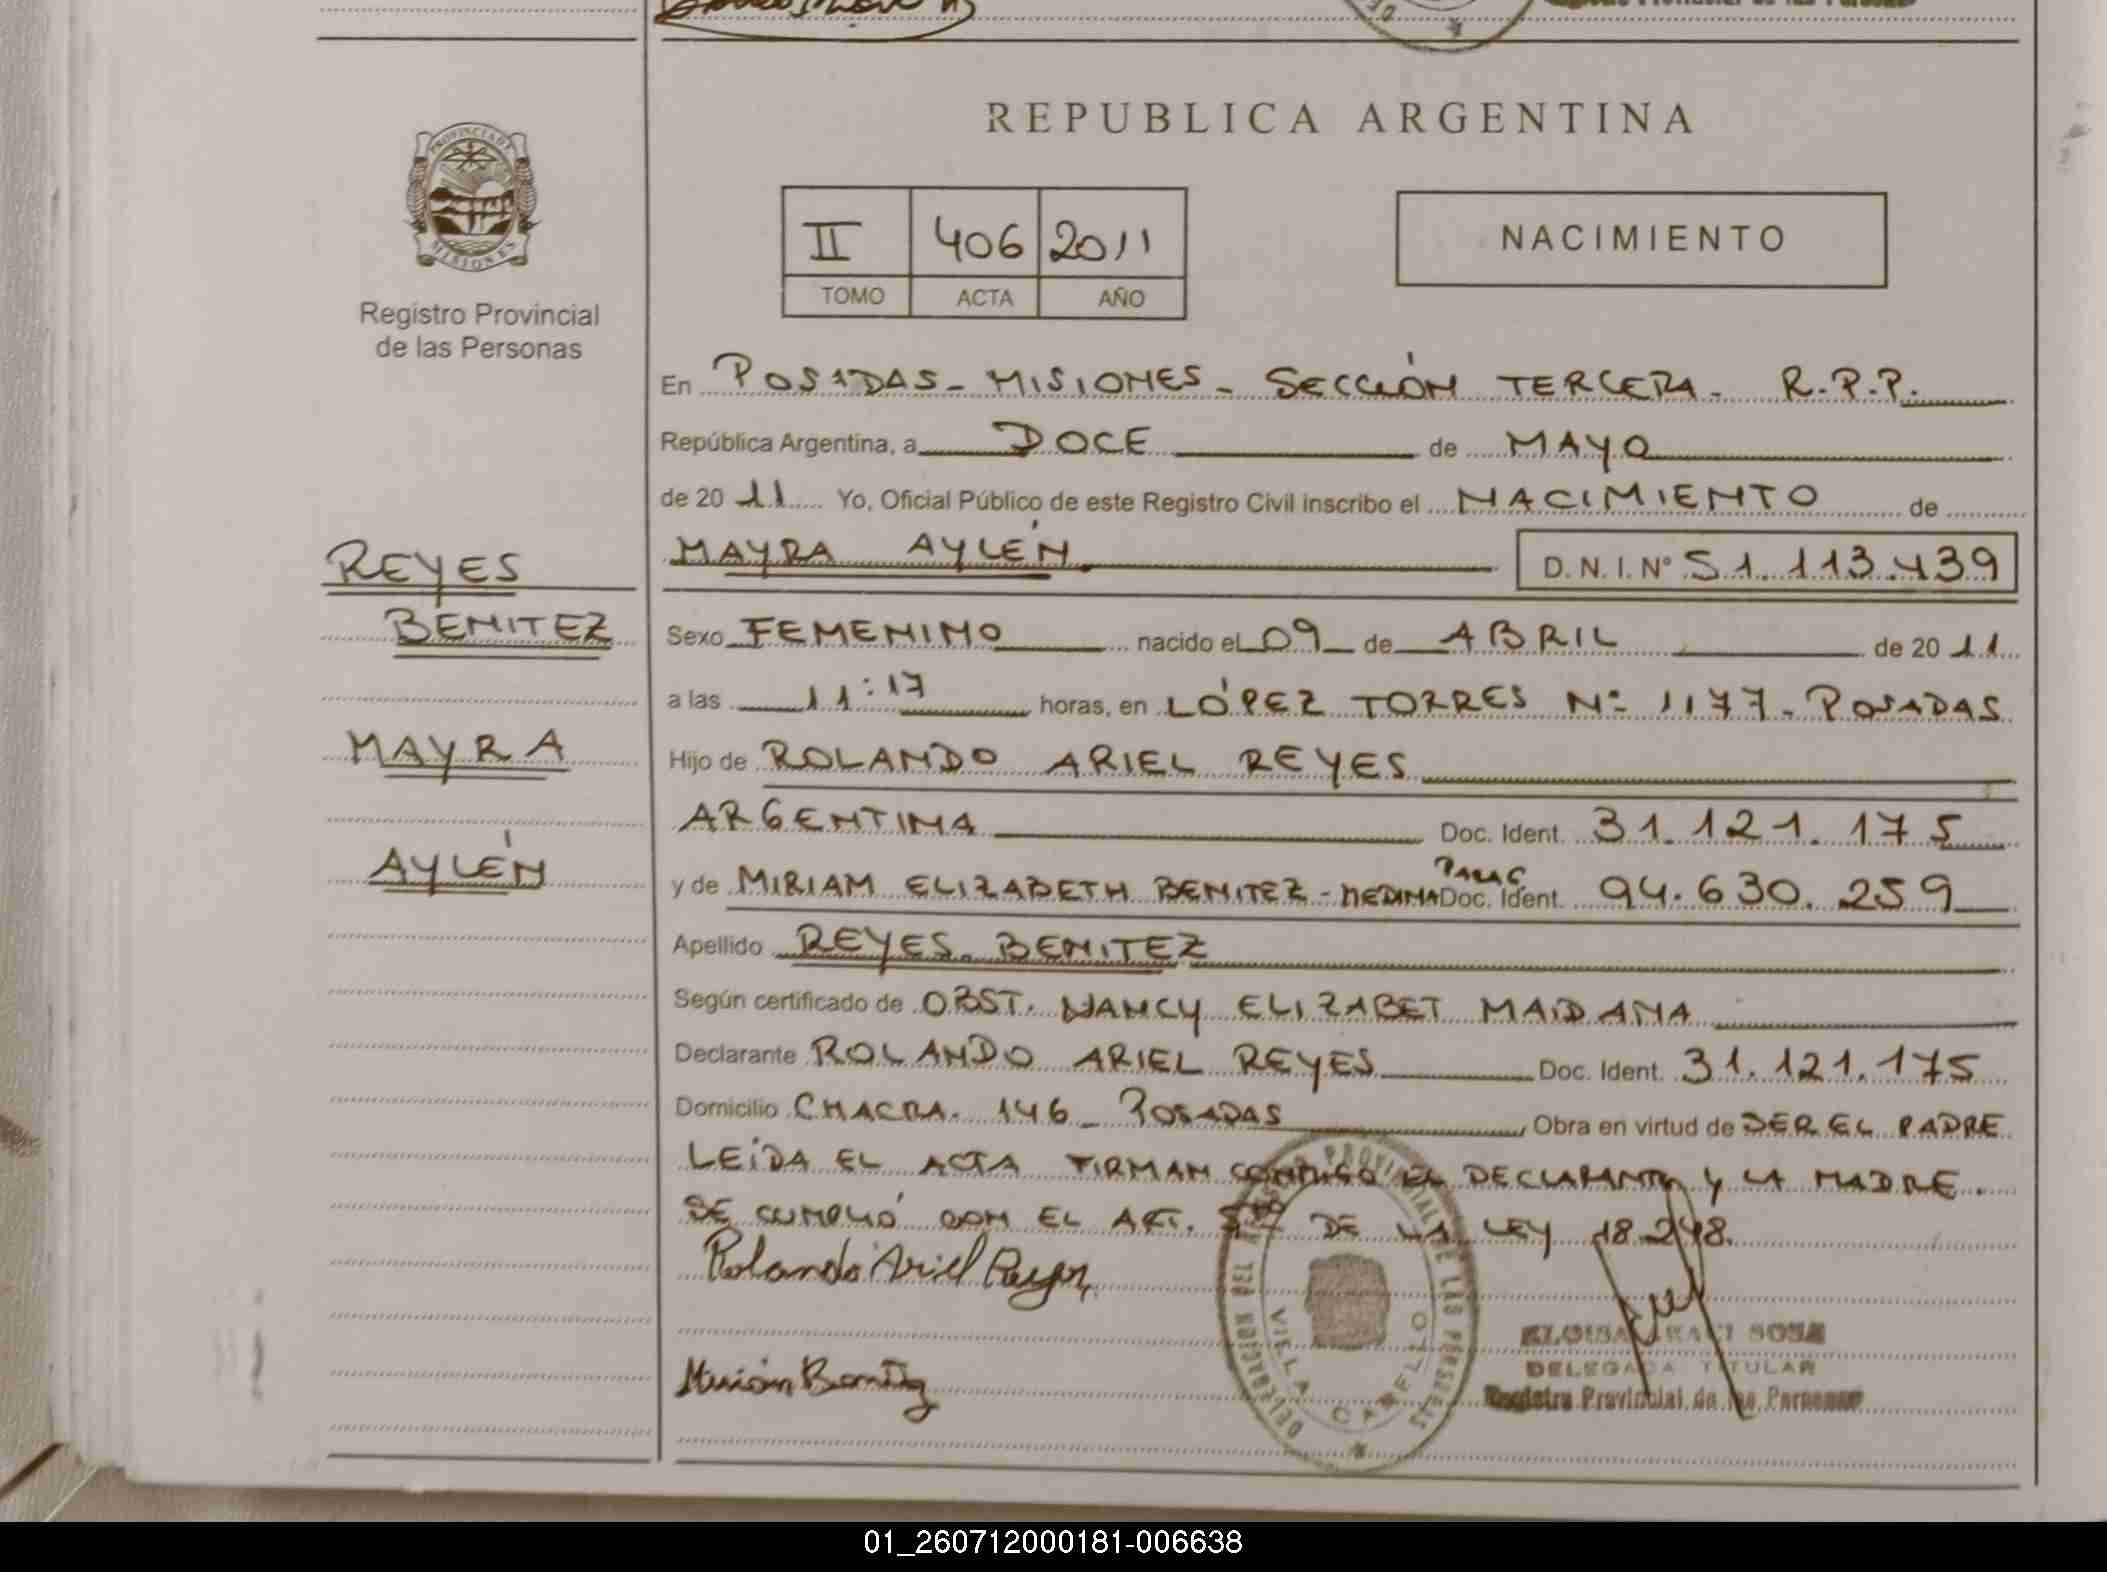 REPUBLICA ARGENTINA
PROVINCIA DE
MISIONES
Registro Provincial
de las Personas
II 406 2011
TOMO ACTA AÑO
NACIMIENTO
En POSADAS - MISIONES - SECCIÓN TERCERA - R.P.P.
República Argentina, a DOCE de MAYO
de 20 11 Yo, Oficial Público de este Registro Civil inscribo el NACIMIENTO de
MAYRA AYLÉN D.N.I. Nº 51.113.439
REYES
BENITEZ
MAYRA
AYLÉN
Sexo FEMENINO nacido el 09 de ABRIL de 20 11
a las 11:17 horas, en LÓPEZ TORRES Nº 1177 - POSADAS
Hijo de ROLANDO ARIEL REYES
ARGENTINA Doc. Ident. 31.121.175
y de MIRIAM ELIZABETH BENITEZ - MEDINA PARAG Doc. Ident. 94.630.259
Apellido REYES BENITEZ
Según certificado de OBST. NANCY ELIZABET MAIDANA
Declarante ROLANDO ARIEL REYES Doc. Ident. 31.121.175
Domicilio CHACRA 146 - POSADAS Obra en virtud de SER EL PADRE
LEIDA EL ACTA FIRMAN CONMIGO EL DECLARANTE Y LA MADRE.
SE CUMPLIÓ CON EL ART. DE LA LEY 18.248.
Rolando Ariel Reyes
Miriam Benitez
DELEGACION DEL REGISTRO PROVINCIAL DE LAS PERSONAS
VILLA CABELLO
SOSA
DELEGADA TITULAR
Registro Provincial de las Personas
01_260712000181-006638